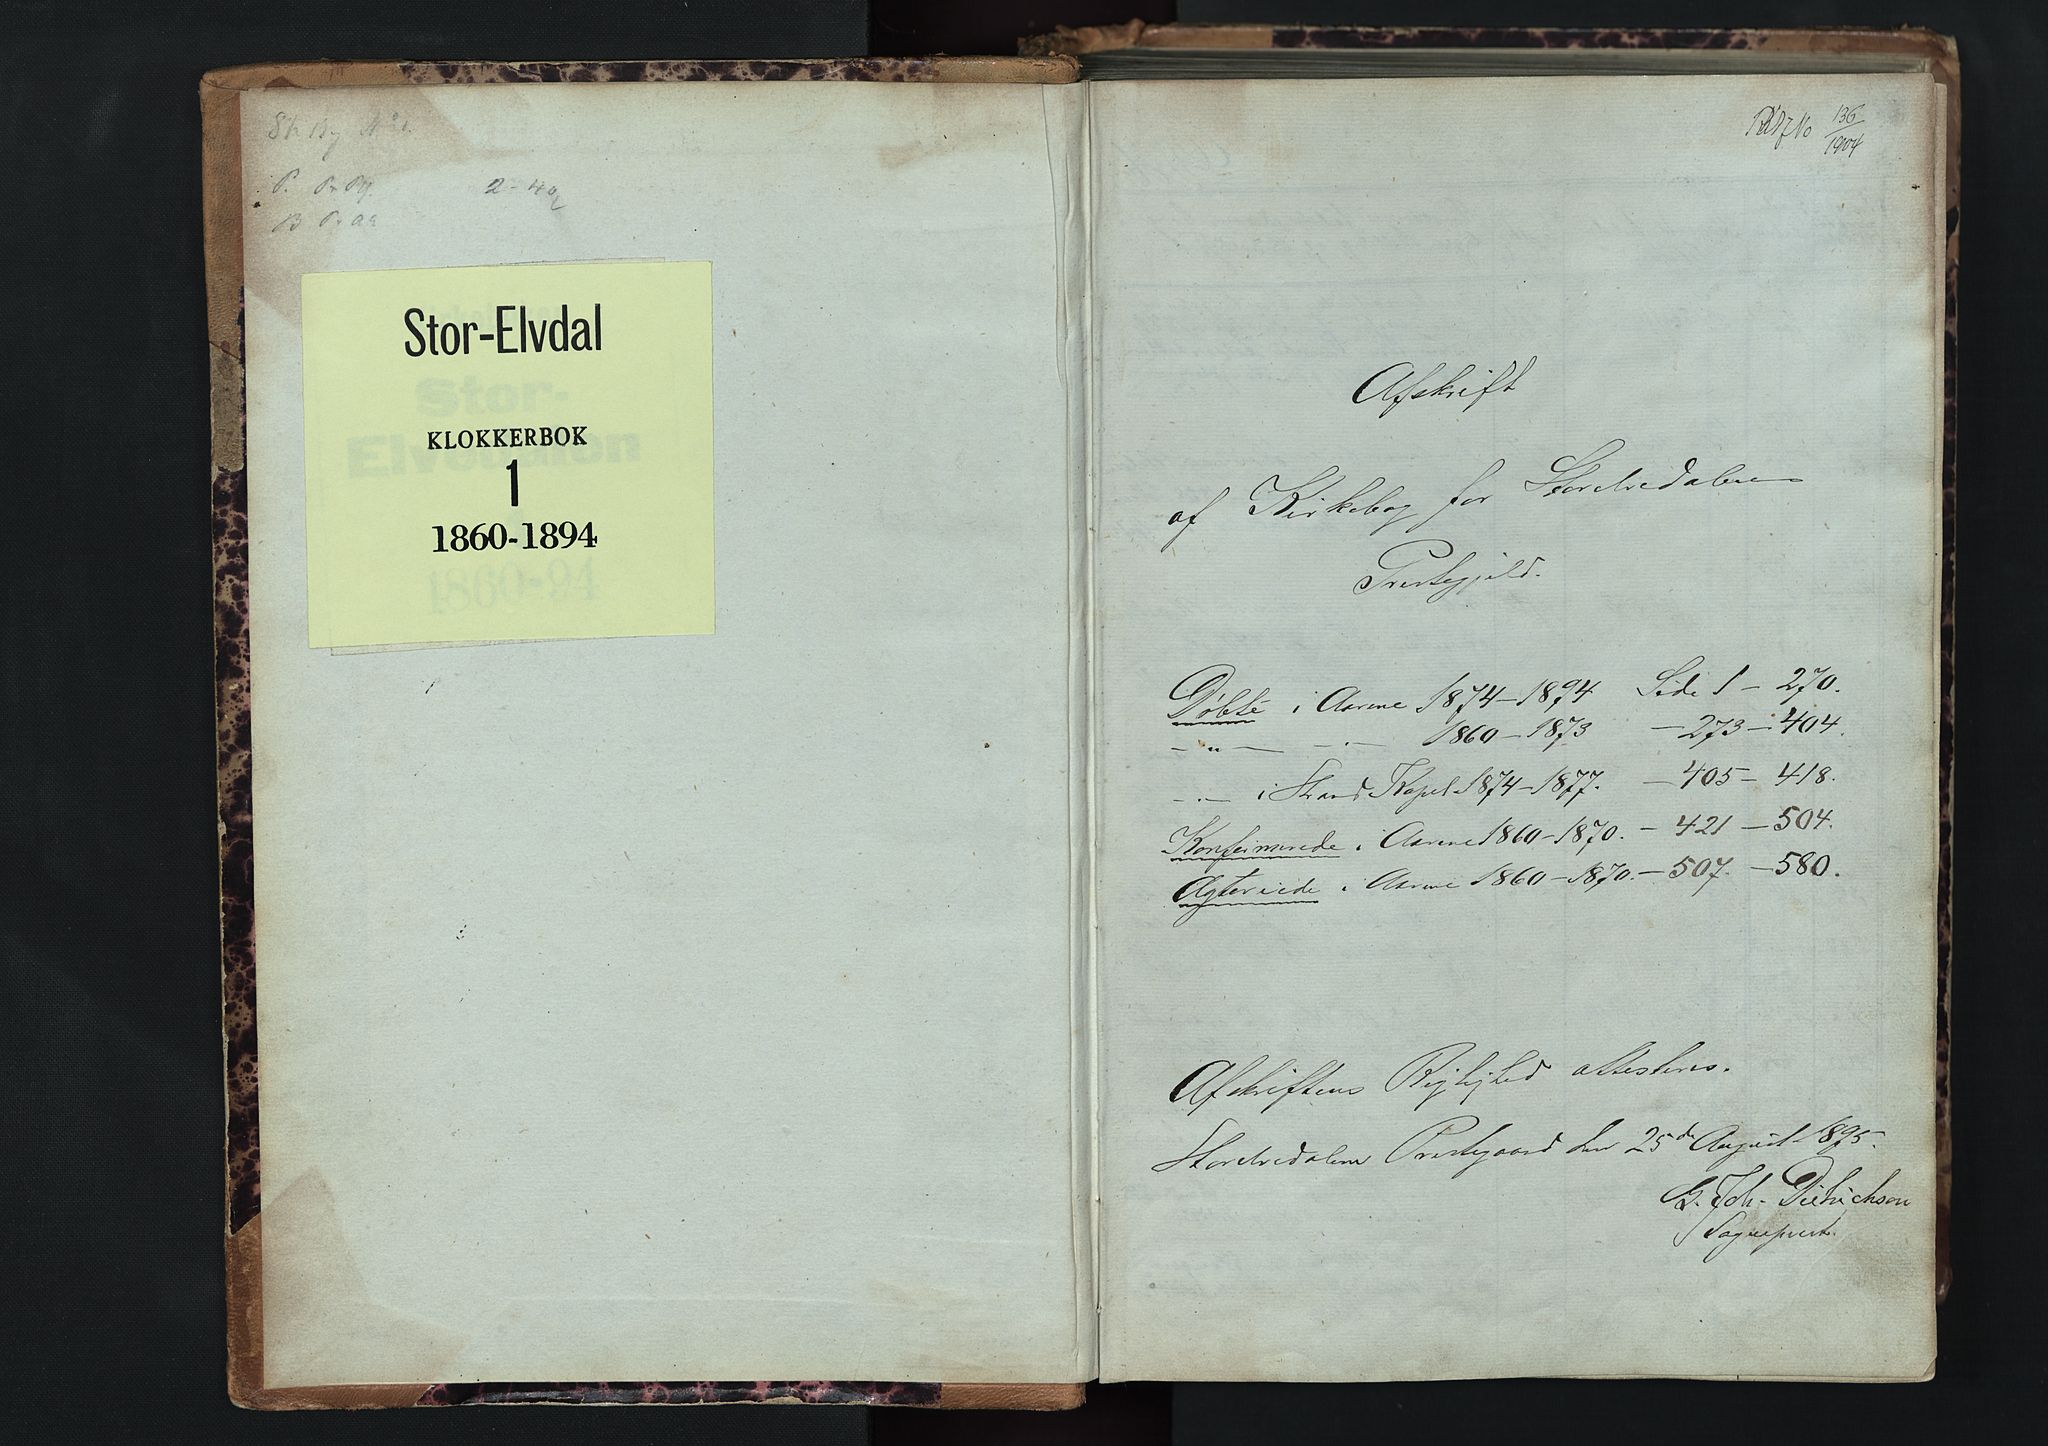 St. By No 1.
P. Pr Pg.
2-40
B Pr aa
Stor-Elvdal
KLOKKERBOK
1
1860-1894
Stor-
Elvedalen
1860-94
No 136/1904
Afskrift
af Kirkebog for Storelvedalens
Prestegjeld.
Døbte i Aarene 1874-1894 Side 1 - 270.
-"- -"- 1860-1873 - 273-404.
-"- i Strand Kapel 1874-1877. - 405-418.
Konfirmerede i Aarene 1860-1870. - 421-504.
Ægteviede i Aarene 1860-1870. - 507. - 580.
Afskriftens Rigtighed attesteres.
Storelvedalens Prestegaard den 25de August 1895.
G. Joh. Dietrichson
Sogneprest.